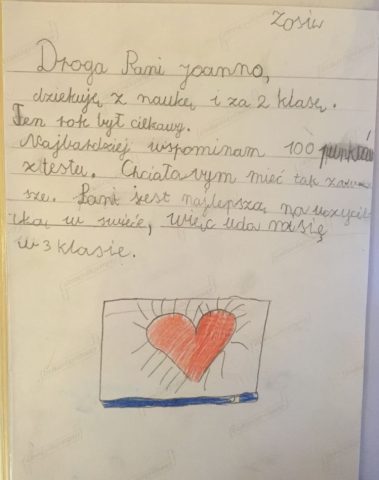 Zosia
Droga Pani Joanno,
dziękuję z naukę i za 2 klasę.
Ten rok był ciekawy.
Najbardziej wspominam 100 punktów
z testu. Chciała bym mieć tak zaw
sze. Pani jest najlepszą na uczyciel
ką w świecie, więc uda mi się
w 3 klasie.